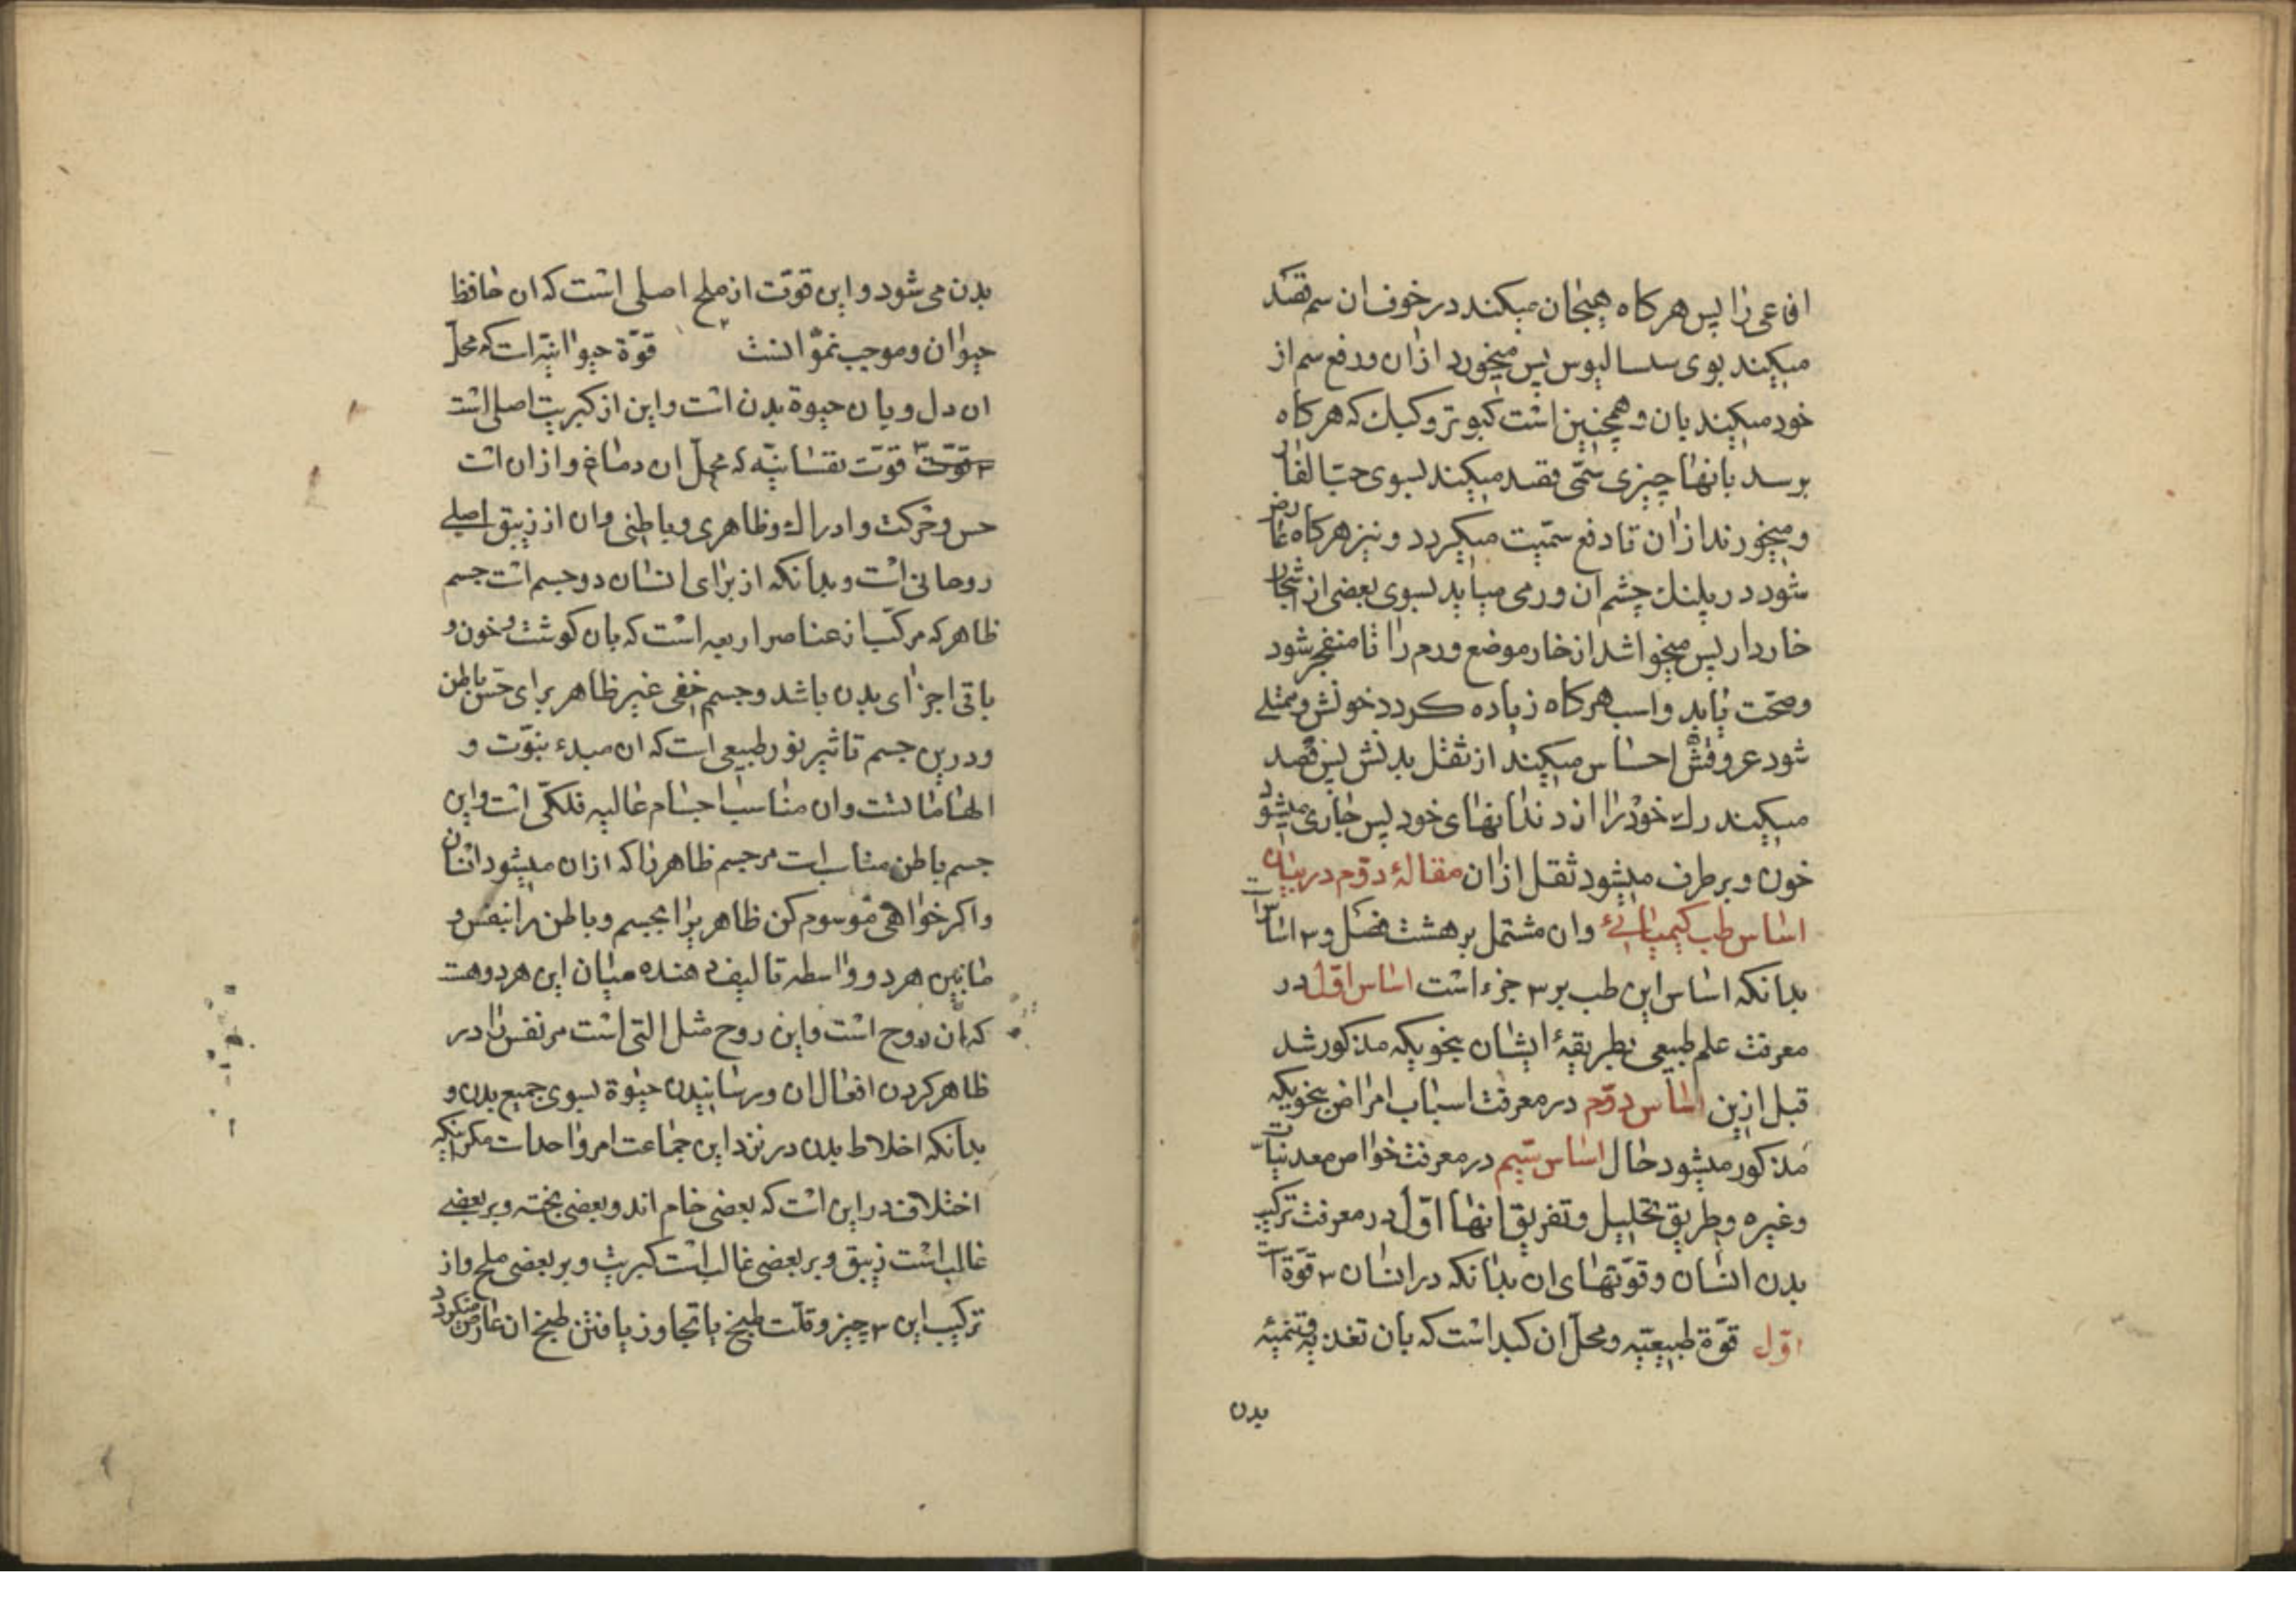 افاعی را پس هرکاه هیجان میکند در خوف ان سم قصد
میکیند بوی سسالیوس پس میخورد ازان و دفع سم از
خود میکیند بان و همچنین است کبوتر و کبک که هرکاه
برسد بانها چیزی سمّی قصد میکیند بسوی حبّ الغار
و میخورند ازان تا دفع سمّیت میکردد و نیز هرکاه عارض
شود در پلنک چشم ان ورمی میاید بسوی بعضی از اشجار
خاردار پس میخواشد از خار موضع ورم را تا منفجر شود
و صحّت یابد و اسب هرکاه زیاده کردد خونش و ممتلی
شود عروقش احساس میکیند از ثقل بدنش پس قصد
میکیند رک خود را از دندانهای خود پس جاری میشود
خون و برطرف میشود ثقل ازان مقالهٔ دوّم در بیان
اساس طب کیمیائی وان مشتمل بر هشت فصل و ۳ اساس است
بدانکه اساس این طب بر ۳ جزء است اساس اوّل در
معرفت علم طبیعی بطریقهٔ ایشان بنحویکه مذکور شد
قبل ازین اساس دوّم در معرفت اسباب امراض بنحویکه
مذکور میشود حال اساس سّیم در معرفت خواص معدنیات
و غیره و طریق تحلیل و تفریق انها اوّل در معرفت ترکیب
بدن انسان و قوّتهای ان بدانکه در انسان ۳ قوّة است
اوّل قوّة طبیعیّه و محلّ ان کبد است که بان تغذیه و تنمیه
بدن
بدن می شود و این قوّت از ملح اصلی است که ان حافظ
حیوان و موجب نموّ انست ۲ قوّة حیوانیّه است که محلّ
ان دل و بان حیوة بدن است و این از کبریت اصلی است
۳ قوّت قوّت نفسانیّه که محلّ ان دماغ و ازان است
حس و حرکت و ادراک و ظاهری و باطنی وان از زیبق اصلی
روحانی است و بدانکه از برای انسان دو جسم است جسم
ظاهر که مرکّب از عناصر اربعه است که بان کوشت و خون و
باقی اجزای بدن باشد و جسم خفی غیر ظاهر برای حس باطن
و درین جسم تاثیر نور طبیعی است که ان مبدء نبوّت و
الهاماتست وان مناسب اجسام عالیه فلکّی است و این
جسم باطن مثاب است مر جسم ظاهر را که ازان میشود انسان
و اکر خواهی موسوم کن ظاهر را بجسم و باطن را بنفس و
مابین هر دو واسطه تالیف دهنده میان این هر دو هست
که ان روح است و این روح مثل التی است مر نفس را در
ظاهر کردن افعال ان و رسانیدن حیوة بسوی جمیع بدن و
بدانکه اخلاط بدن در نزد این جماعت امر واحد است مکر انکه
اختلاف در این است که بعضی خام اند و بعضی پخته و بر بعضی
غالب است زیبق و بر بعضی غالب است کبریت و بر بعضی ملح و از
ترکیب این ۳ چیز و قلّت طبخ یا تجاوز یافتن طبخ ان عارض میکردد